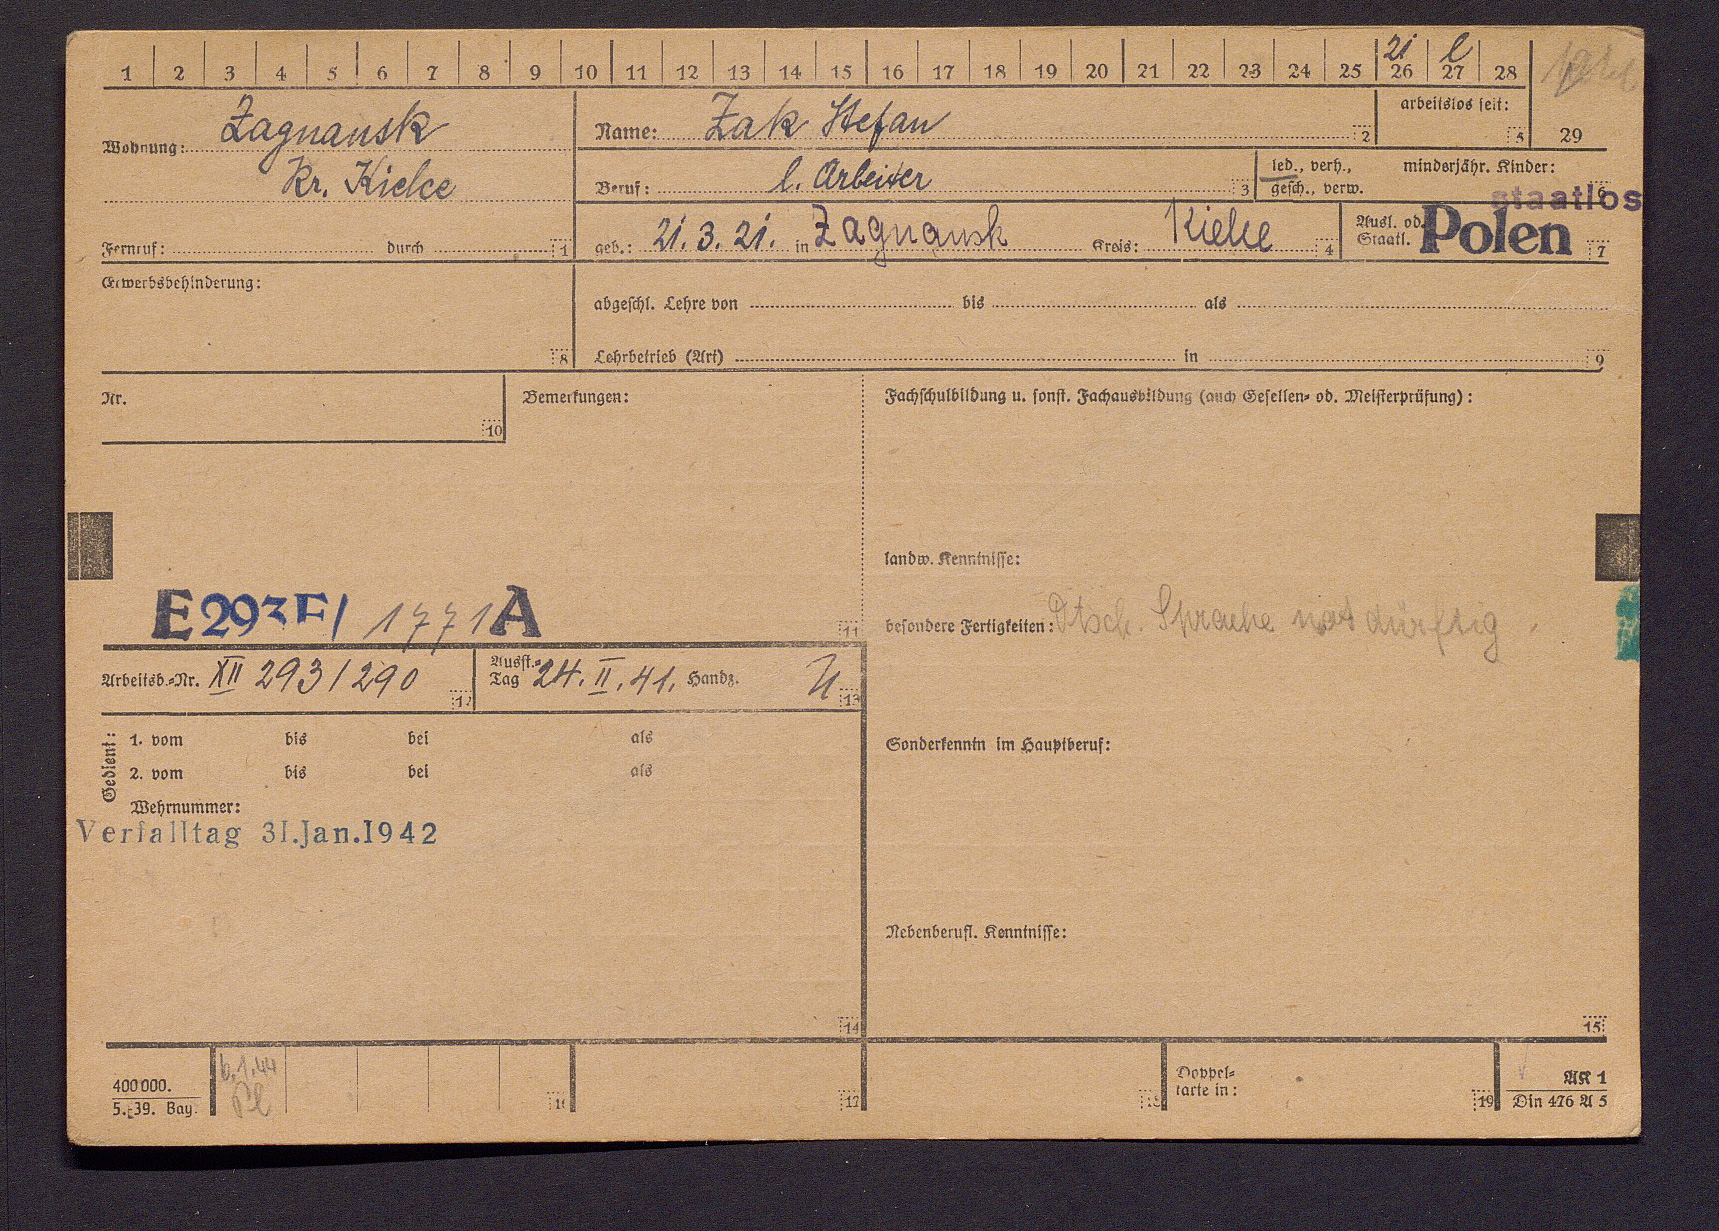 21 l
1 2 3 4 5 6 7 8 9 10 11 12 13 14 15 16 17 18 19 20 21 22 23 24 25 26 27 28
29
Wohnung: Zagnansk
Kr. Kielce
Fernruf: durch 1
Name: Żak Stefan 2
arbeitslos seit: 5
Beruf: l. Arbeiter 3
led., verh.,
gesch., verw.
minderjähr. Kinder: 6
geb.: 21. 3. 21. in Zagnansk Kreis: Kielce 4
Ausl. od.
Staatl.
staatlos
Polen 7
Erwerbsbehinderung: 8
abgeschl. Lehre von bis als
Lehrbetrieb (Art) in 9
Nr. 10
Bemerkungen:
E 293 F/ 1771 A 11
Arbeitsb.-Nr. XII 293/290 12
Ausst.-
Tag 24. II. 41. Handz. 13
Gedient:
1. vom bis bei als
2. vom bis bei als
Wehrnummer:
Verfalltag 31.Jan.1942
14
Fachschulbildung u. sonst. Fachausbildung (auch Gesellen- od. Meisterprüfung):
landw. Kenntnisse:
besondere Fertigkeiten: Dtsch. Sprache notdürftig.
Sonderkenntn im Hauptberuf:
Nebenberufl. Kenntnisse:
15
400000.
5. 39. Bay.
6.1.44
16 17 18
Doppel-
karte in: 19
AK 1
Din 476 A 5